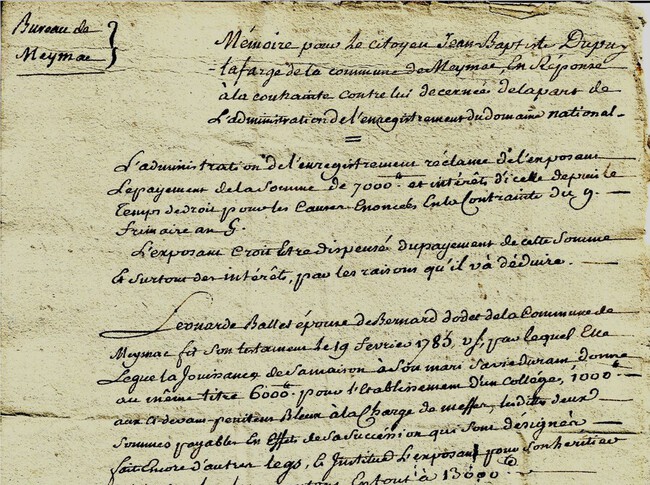 Bureau de
Meymac
Mémoire pour Le citoyen Jean Baptiste Dupuy
Lafarge de la commune de Meymac, En Réponse
à la contrainte contre lui decernée dela part de
L'administration de l'enregistrement du domaine national
L'administration de l'enregistrement réclame de l'exposant
Le payement de la Somme de 7000ᵗᵗ et intérêts d'icelle depuis le
Temps de droit pour les Causes Enoncées En la Contrainte du 9
frimaire an 5.
L'exposant Croit Etre dispensé du payement de cette Somme
Et Surtout des intérêts, par les raisons qu'il và déduire.
Leonarde Balles épouse de Bernard dodet de la Commune de
Meymac fit Son testament le 19 fevrier 1785 par lequel Elle
Legue la Jouissance de Sa maison à Son mari Sa vie durant donne
au même titre 6000ᵗᵗ pour l'Etablissement d'un Collège, 1000ᵗᵗ
aux ci-devant penitens Bleux à la Charge de messes, les dittes deux
Sommes payables En Effets de Sa Succession qui Sont désignés
fait Encore d'autres legs, Et Institue L'exposant pour Son heritier
En tout à 13000ᵗᵗ